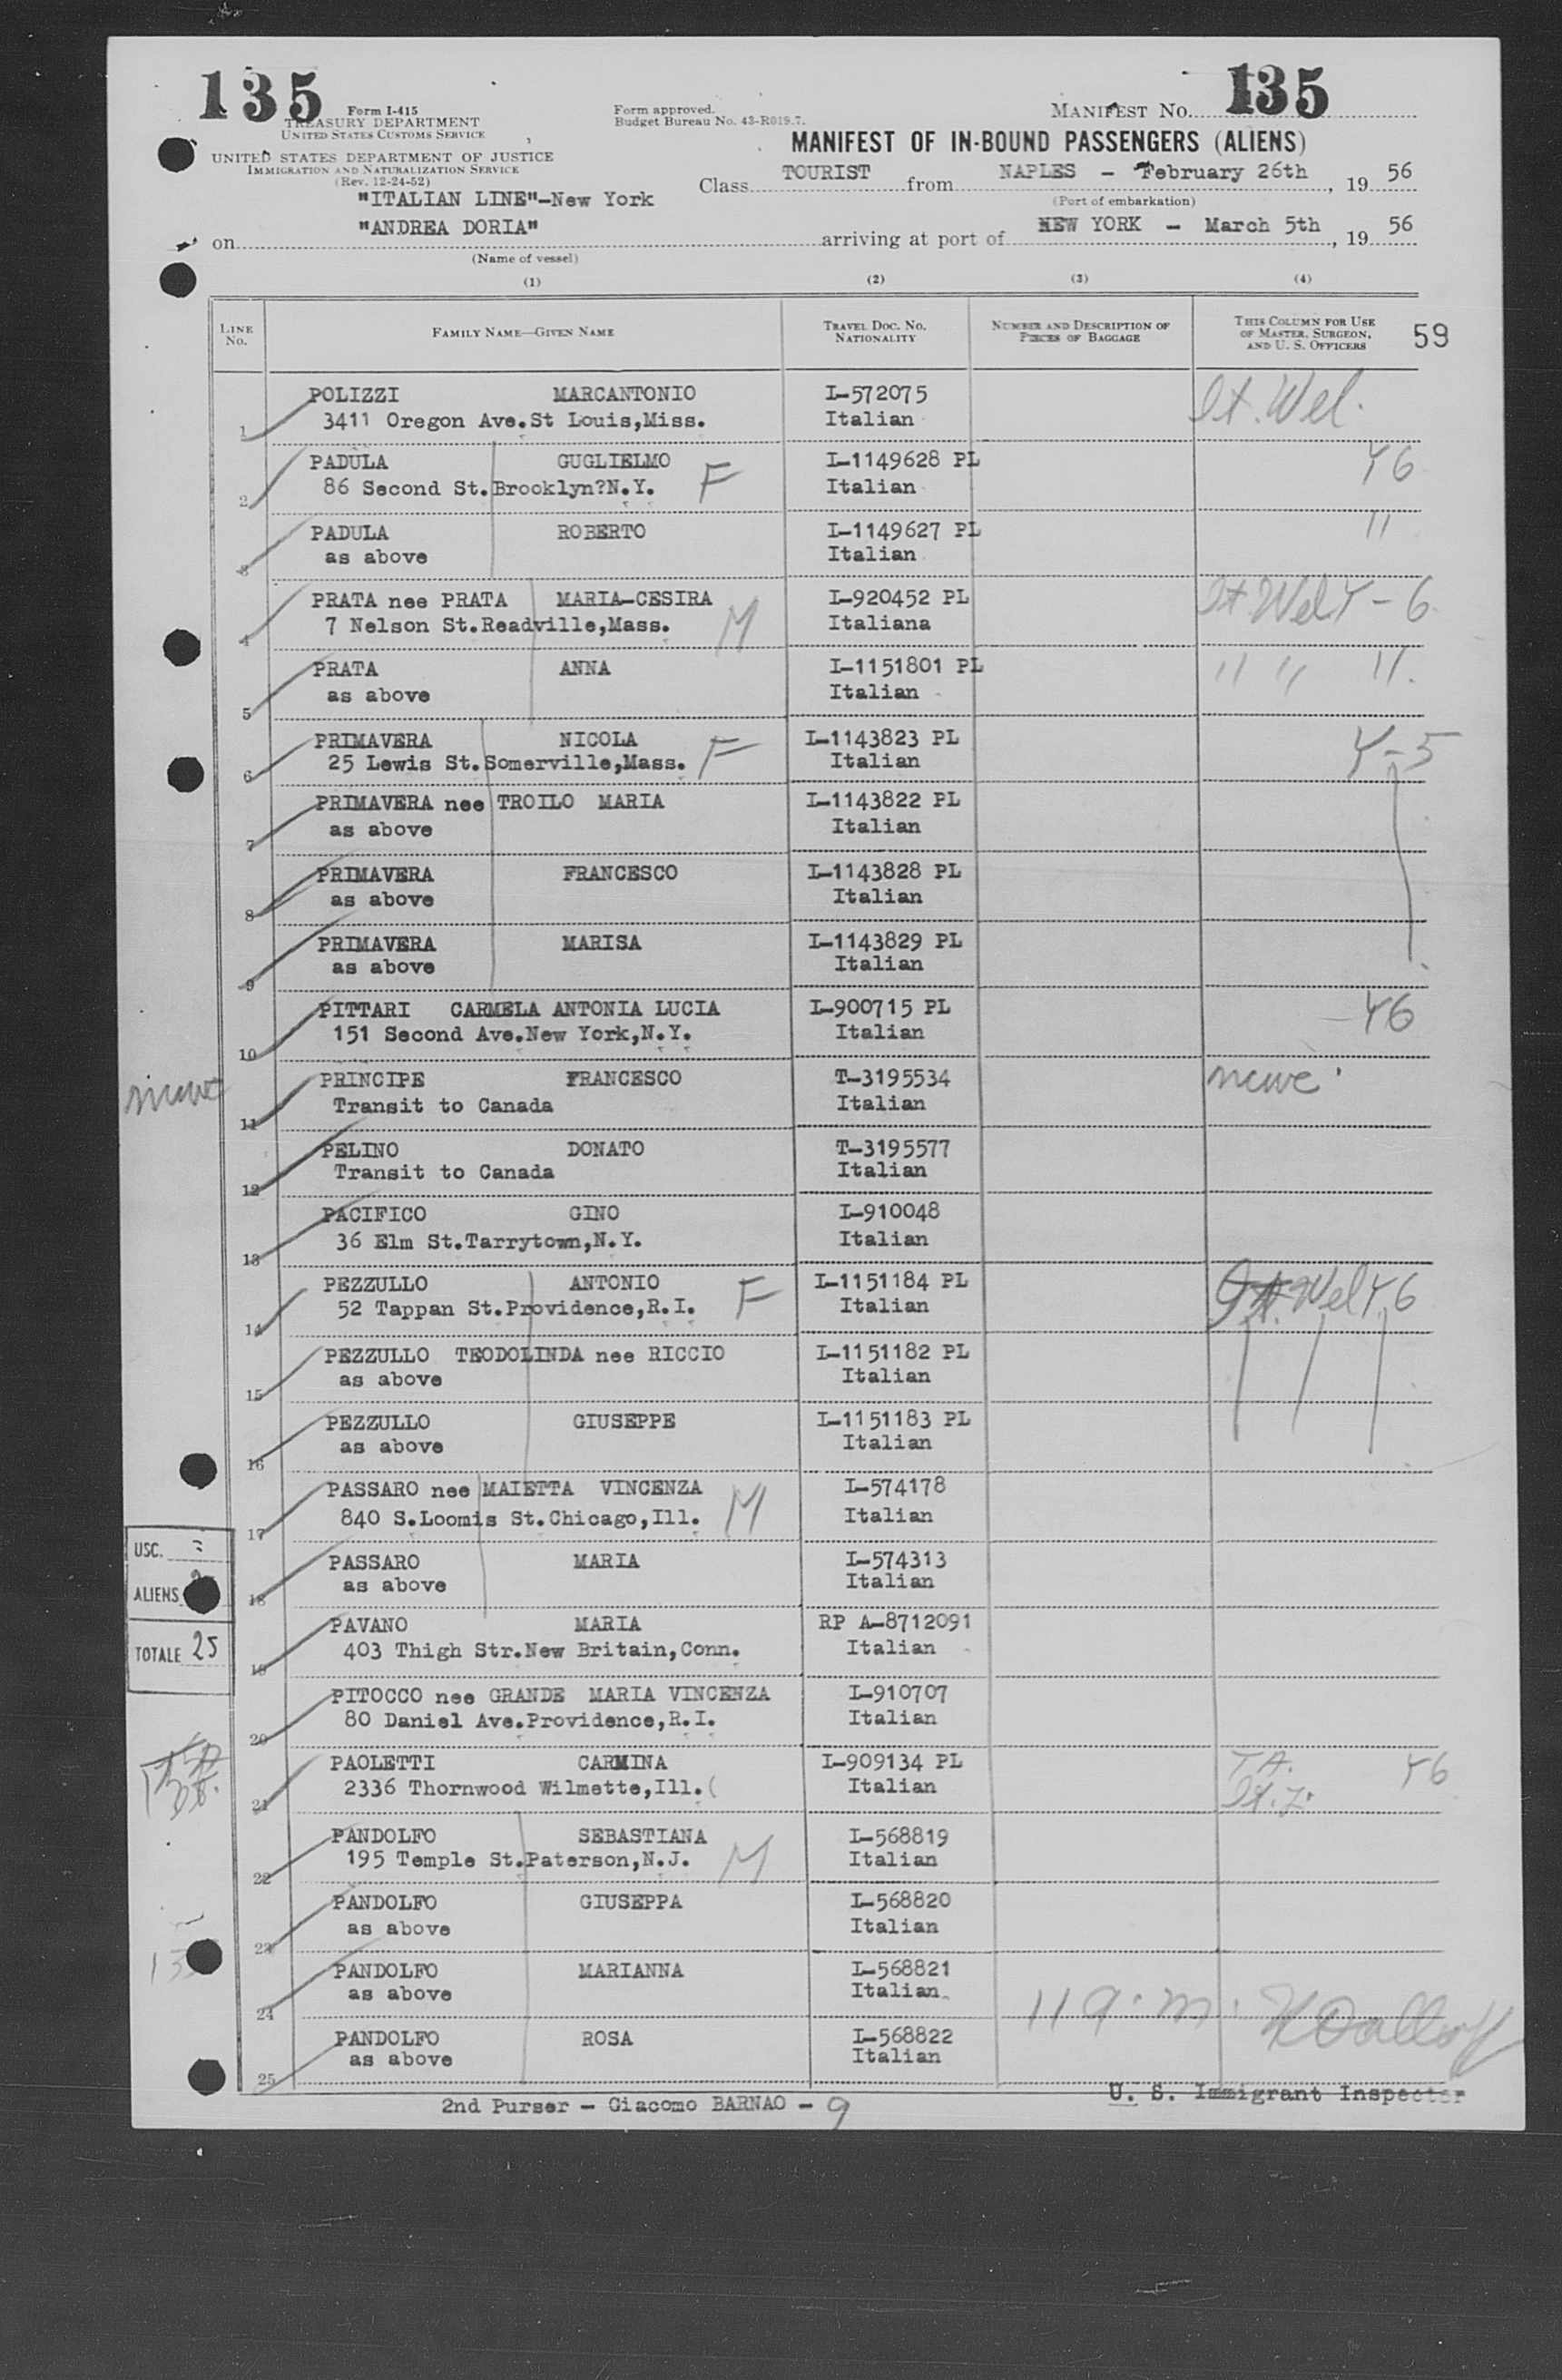 135
Form I-415
TREASURY DEPARTMENT
UNITED STATES CUSTOMS SERVICE
UNITED STATES DEPARTMENT OF JUSTICE
IMMIGRATION AND NATURALIZATION SERVICE
(Rev. 12-24-52)
Form approved.
Budget Bureau No. 43-R019.7.
MANIFEST No. 135
MANIFEST OF IN-BOUND PASSENGERS (ALIENS)
Class TOURIST from NAPLES - February 26th, 1956
(Port of embarkation)
"ITALIAN LINE"-New York
on "ANDREA DORIA" arriving at port of NEW YORK - March 5th, 1956
(Name of vessel)
(1) (2) (3) (4)
LINE No. FAMILY NAME—GIVEN NAME TRAVEL DOC. No. NATIONALITY NUMBER AND DESCRIPTION OF PIECES OF BAGGAGE THIS COLUMN FOR USE OF MASTER, SURGEON, AND U. S. OFFICERS 59
POLIZZI MARCANTONIO I-572075 It. Wel.
1 3411 Oregon Ave.St Louis,Miss. Italian
PADULA GUGLIELMO I-1149628 PL Y6
2 86 Second St.Brooklyn?N.Y. F Italian
PADULA ROBERTO I-1149627 PL "
3 as above Italian
PRATA nee PRATA MARIA-CESIRA I-920452 PL It Wel Y-6
4 7 Nelson St.Readville,Mass. M Italiana
PRATA ANNA I-1151801 PL " " "
5 as above Italian
PRIMAVERA NICOLA I-1143823 PL Y-5
6 25 Lewis St.Somerville,Mass. F Italian
PRIMAVERA nee TROILO MARIA I-1143822 PL
7 as above Italian
PRIMAVERA FRANCESCO I-1143828 PL
8 as above Italian
PRIMAVERA MARISA I-1143829 PL
9 as above Italian
PITTARI CARMELA ANTONIA LUCIA I-900715 PL Y6
10 151 Second Ave.New York,N.Y. Italian
PRINCIPE FRANCESCO T-3195534
11 Transit to Canada Italian
PELINO DONATO T-3195577
12 Transit to Canada Italian
PACIFICO GINO I-910048
13 36 Elm St.Tarrytown,N.Y. Italian
PEZZULLO ANTONIO F I-1151184 PL It. Wel Y6
14 52 Tappan St.Providence,R.I. Italian
PEZZULLO TEODOLINDA nee RICCIO I-1151182 PL
15 as above Italian
PEZZULLO GIUSEPPE I-1151183 PL
16 as above Italian
PASSARO nee MAIETTA VINCENZA I-574178
17 840 S.Loomis St.Chicago,Ill. M Italian
USC.
PASSARO MARIA I-574313
18 as above Italian
ALIENS
PAVANO MARIA RP A-8712091
19 403 Thigh Str.New Britain,Conn. Italian
TOTALE 25
PITOCCO nee GRANDE MARIA VINCENZA I-910707
20 80 Daniel Ave.Providence,R.I. Italian
PAOLETTI CARMINA I-909134 PL Y6
21 2336 Thornwood Wilmette,Ill. Italian
PANDOLFO SEBASTIANA I-568819
22 195 Temple St.Paterson,N.J. M Italian
PANDOLFO GIUSEPPA I-568820
23 as above Italian
PANDOLFO MARIANNA I-568821
24 as above Italian
11 a.m.
PANDOLFO ROSA I-568822
25 as above Italian
U. S. Immigrant Inspector
2nd Purser - Giacomo BARNAO - 9